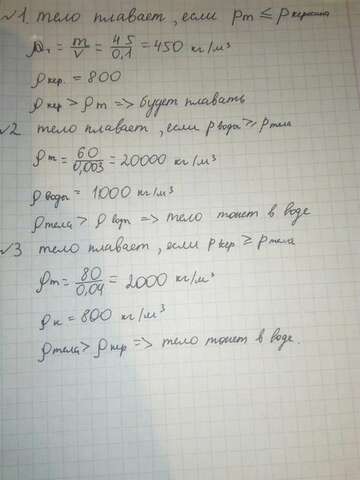 √1. тело плавает, если ρт ≤ ρкеросина
ρт = m/v = 45/0,1 = 450 кг/м³
ρкер. = 800
ρкер > ρт => будет плавать
√2 тело плавает, если ρводы ≥ ρтела
ρт = 60/0,003 = 20000 кг/м³
ρводы = 1000 кг/м³
ρтела > ρводы => тело тонет в воде
√3 тело плавает, если ρкер ≥ ρтела
ρт = 80/0,04 = 2000 кг/м³
ρк = 800 кг/м³
ρтела > ρкер => тело тонет в воде.